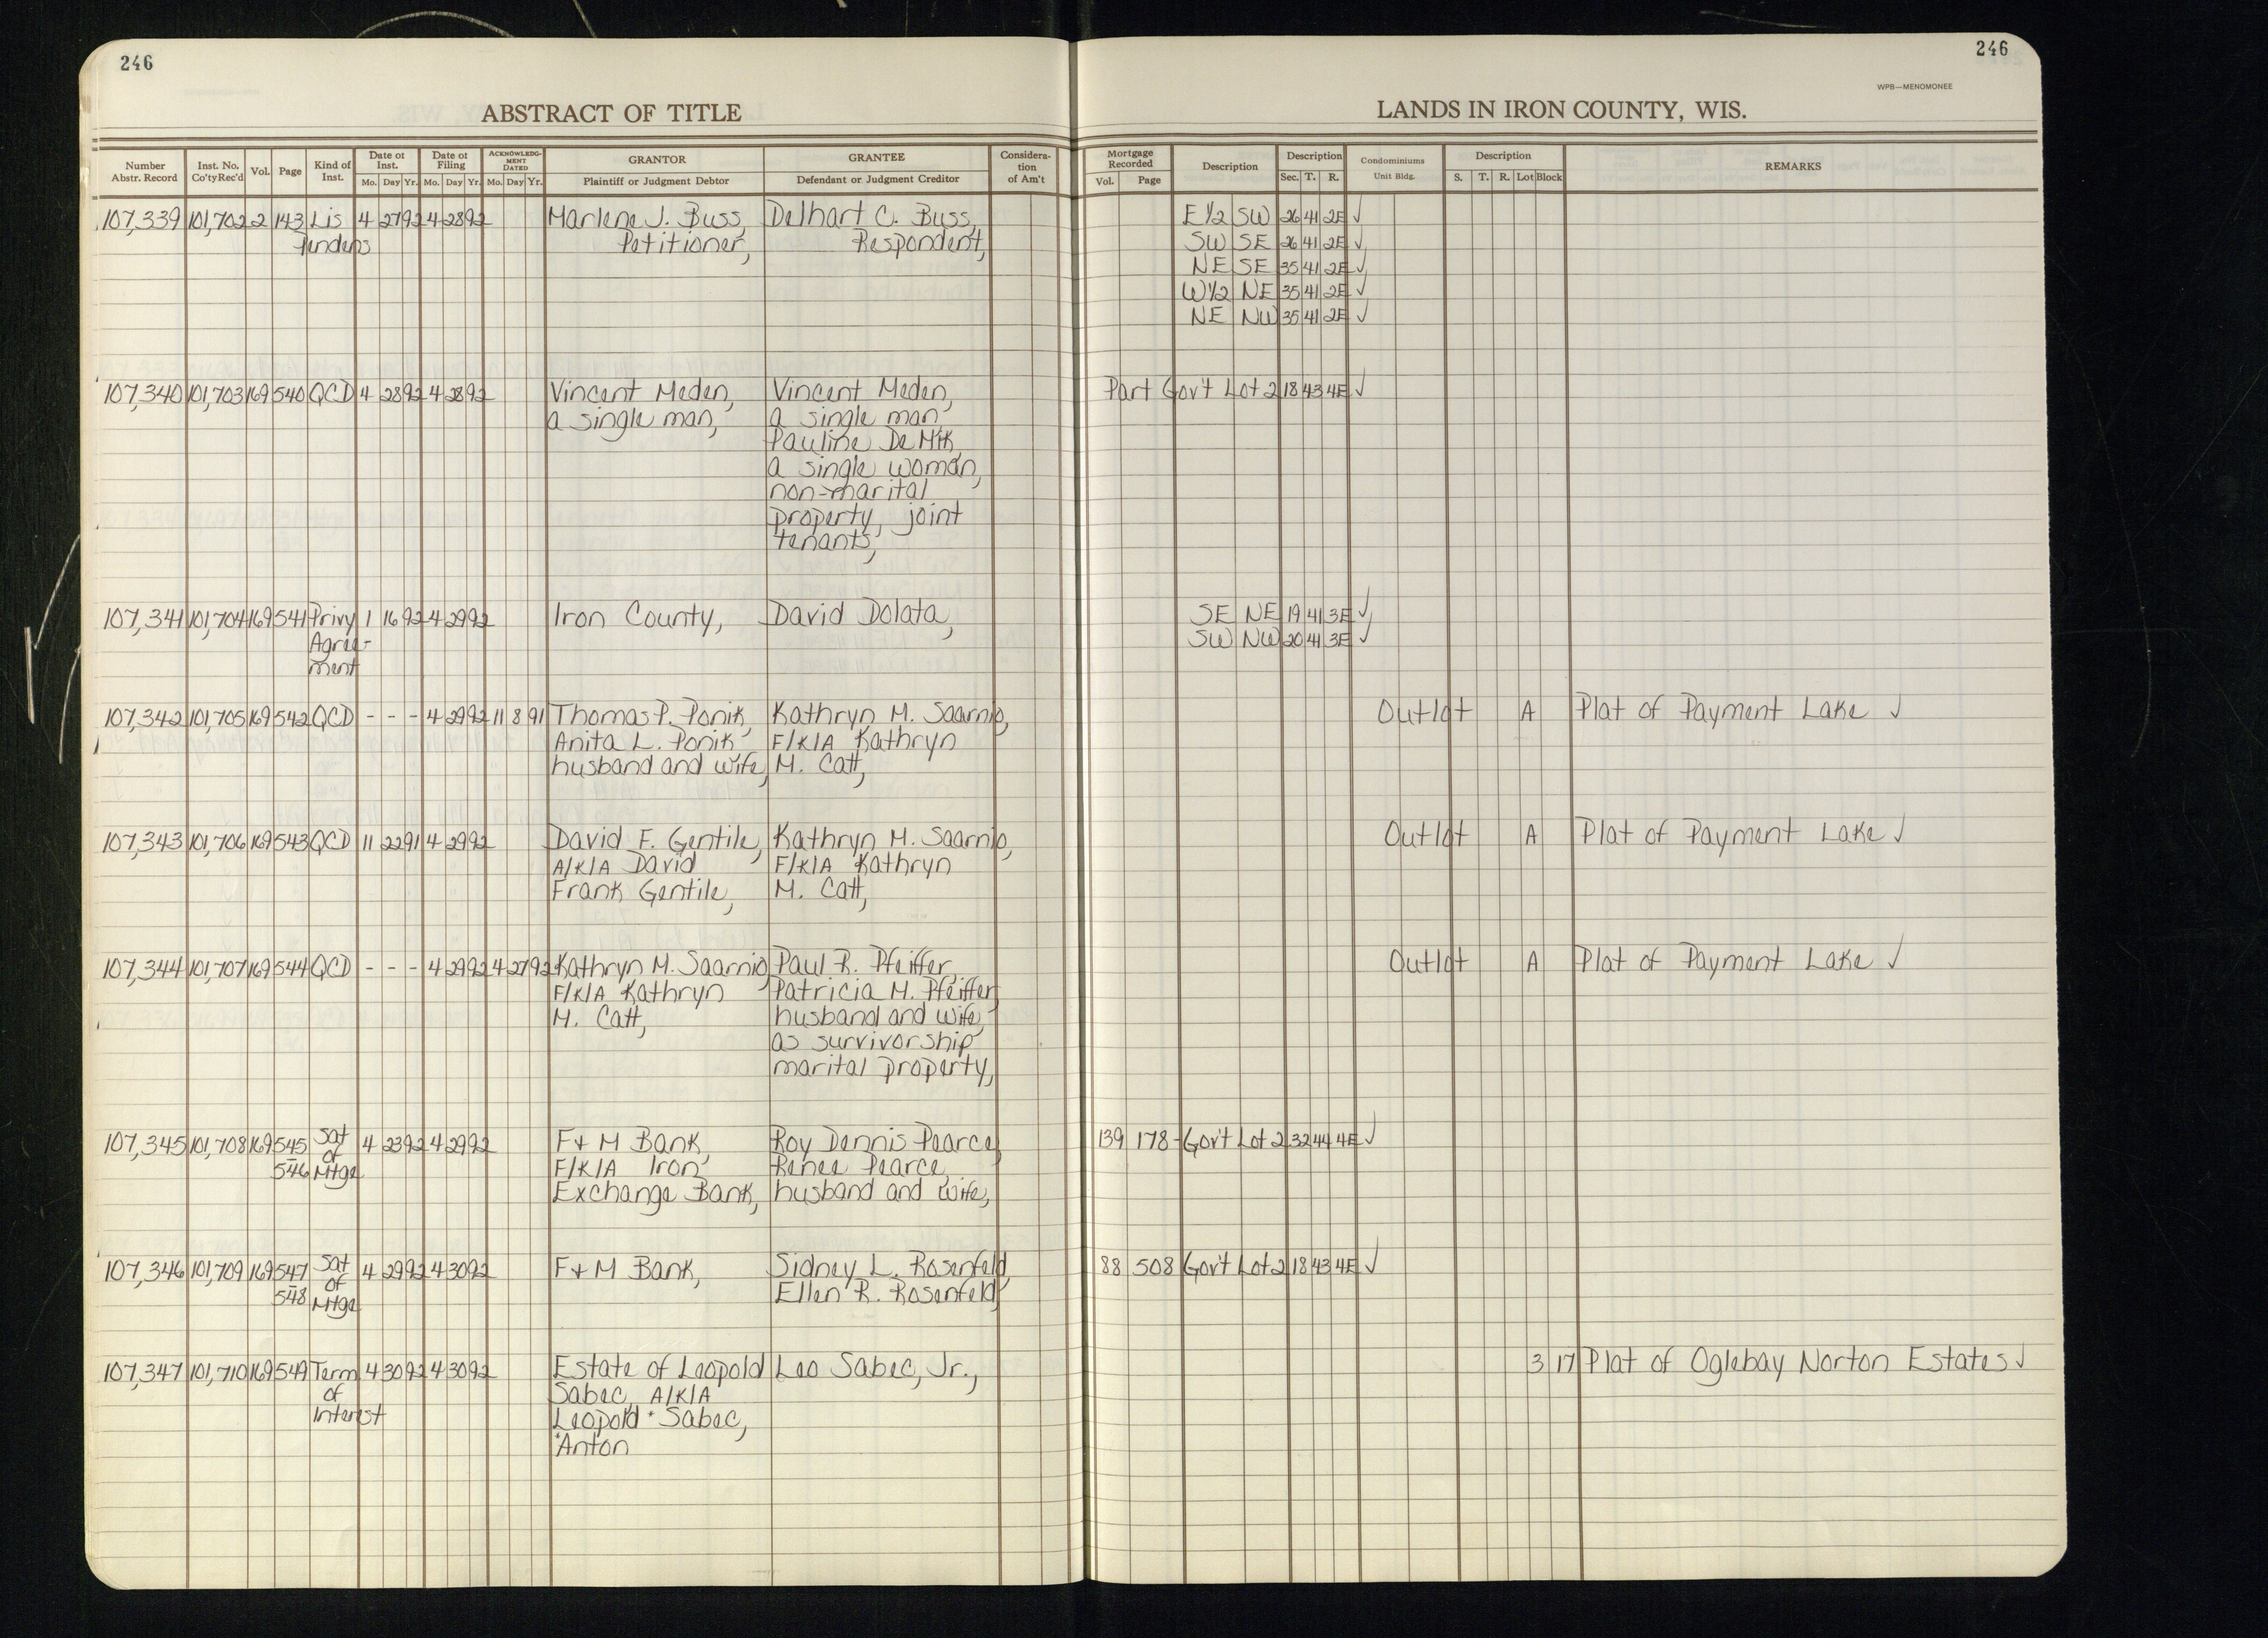 246
246
WPB—MENOMONEE
ABSTRACT OF TITLE
LANDS IN IRON COUNTY, WIS.
Number Abstr. Record | Inst. No. Co'ty Rec'd | Vol. | Page | Kind of Inst. | Date of Inst. Mo. Day Yr. | Date of Filing Mo. Day Yr. | ACKNOWLEDG-MENT DATED Mo. Day Yr. | GRANTOR Plaintiff or Judgment Debtor | GRANTEE Defendant or Judgment Creditor | Considera-tion of Am't | Mortgage Recorded Vol. Page | Description | Description Sec. T. R. | Condominiums Unit Bldg. | Description S. T. R. Lot Block | REMARKS
107,339 101,702 2 143 Lis 4 27 92 4 28 92 Marlene J. Buss, Delhart C. Buss, E 1/2 SW 26 41 2E ✓
Pendens Petitioner, Respondent, SW SE 26 41 2E ✓
NE SE 35 41 2E ✓
W 1/2 NE 35 41 2E ✓
NE NW 35 41 2E ✓
107,340 101,703 169 540 QCD 4 28 92 4 28 92 Vincent Meden, Vincent Meden, Part Gov't Lot 2 18 43 4E ✓
a single man, a single man,
Pauline DeMik,
a single woman,
non-marital
property, joint
tenants,
107,341 101,704 169 541 Privy 1 16 92 4 29 92 Iron County, David Dolata, SE NE 19 41 3E ✓
Agree- SW NW 20 41 3E ✓
ment
107,342 101,705 169 542 QCD - - - 4 29 92 11 8 91 Thomas P. Ponik, Kathryn M. Saarnio, Outlot A Plat of Payment Lake ✓
Anita L. Ponik F/K/A Kathryn
husband and wife, M. Catt,
107,343 101,706 169 543 QCD 11 22 91 4 29 92 David F. Gentile, Kathryn M. Saarnio, Outlot A Plat of Payment Lake ✓
A/K/A David F/K/A Kathryn
Frank Gentile, M. Catt,
107,344 101,707 169 544 QCD - - - 4 29 92 4 27 92 Kathryn M. Saarnio, Paul R. Pfeiffer, Outlot A Plat of Payment Lake ✓
F/K/A Kathryn Patricia M. Pfeiffer,
M. Catt, husband and wife,
as survivorship
marital property,
107,345 101,708 169 545 Sat 4 23 92 4 29 92 F + M Bank, Roy Dennis Pearce, 139 178 - Gov't Lot 2 32 44 4E ✓
- of F/K/A Iron Renee Pearce,
546 Mtge Exchange Bank, husband and wife,
107,346 101,709 169 547 Sat 4 29 92 4 30 92 F + M Bank, Sidney L. Rosenfeld, 88 508 Gov't Lot 2 18 43 4E ✓
- of Ellen R. Rosenfeld,
548 Mtge
107,347 101,710 169 549 Term 4 30 92 4 30 92 Estate of Leopold Leo Sabec, Jr., 3 17 Plat of Oglebay Norton Estates ✓
of Sabec, A/K/A
Interest Leopold * Sabec,
*Anton